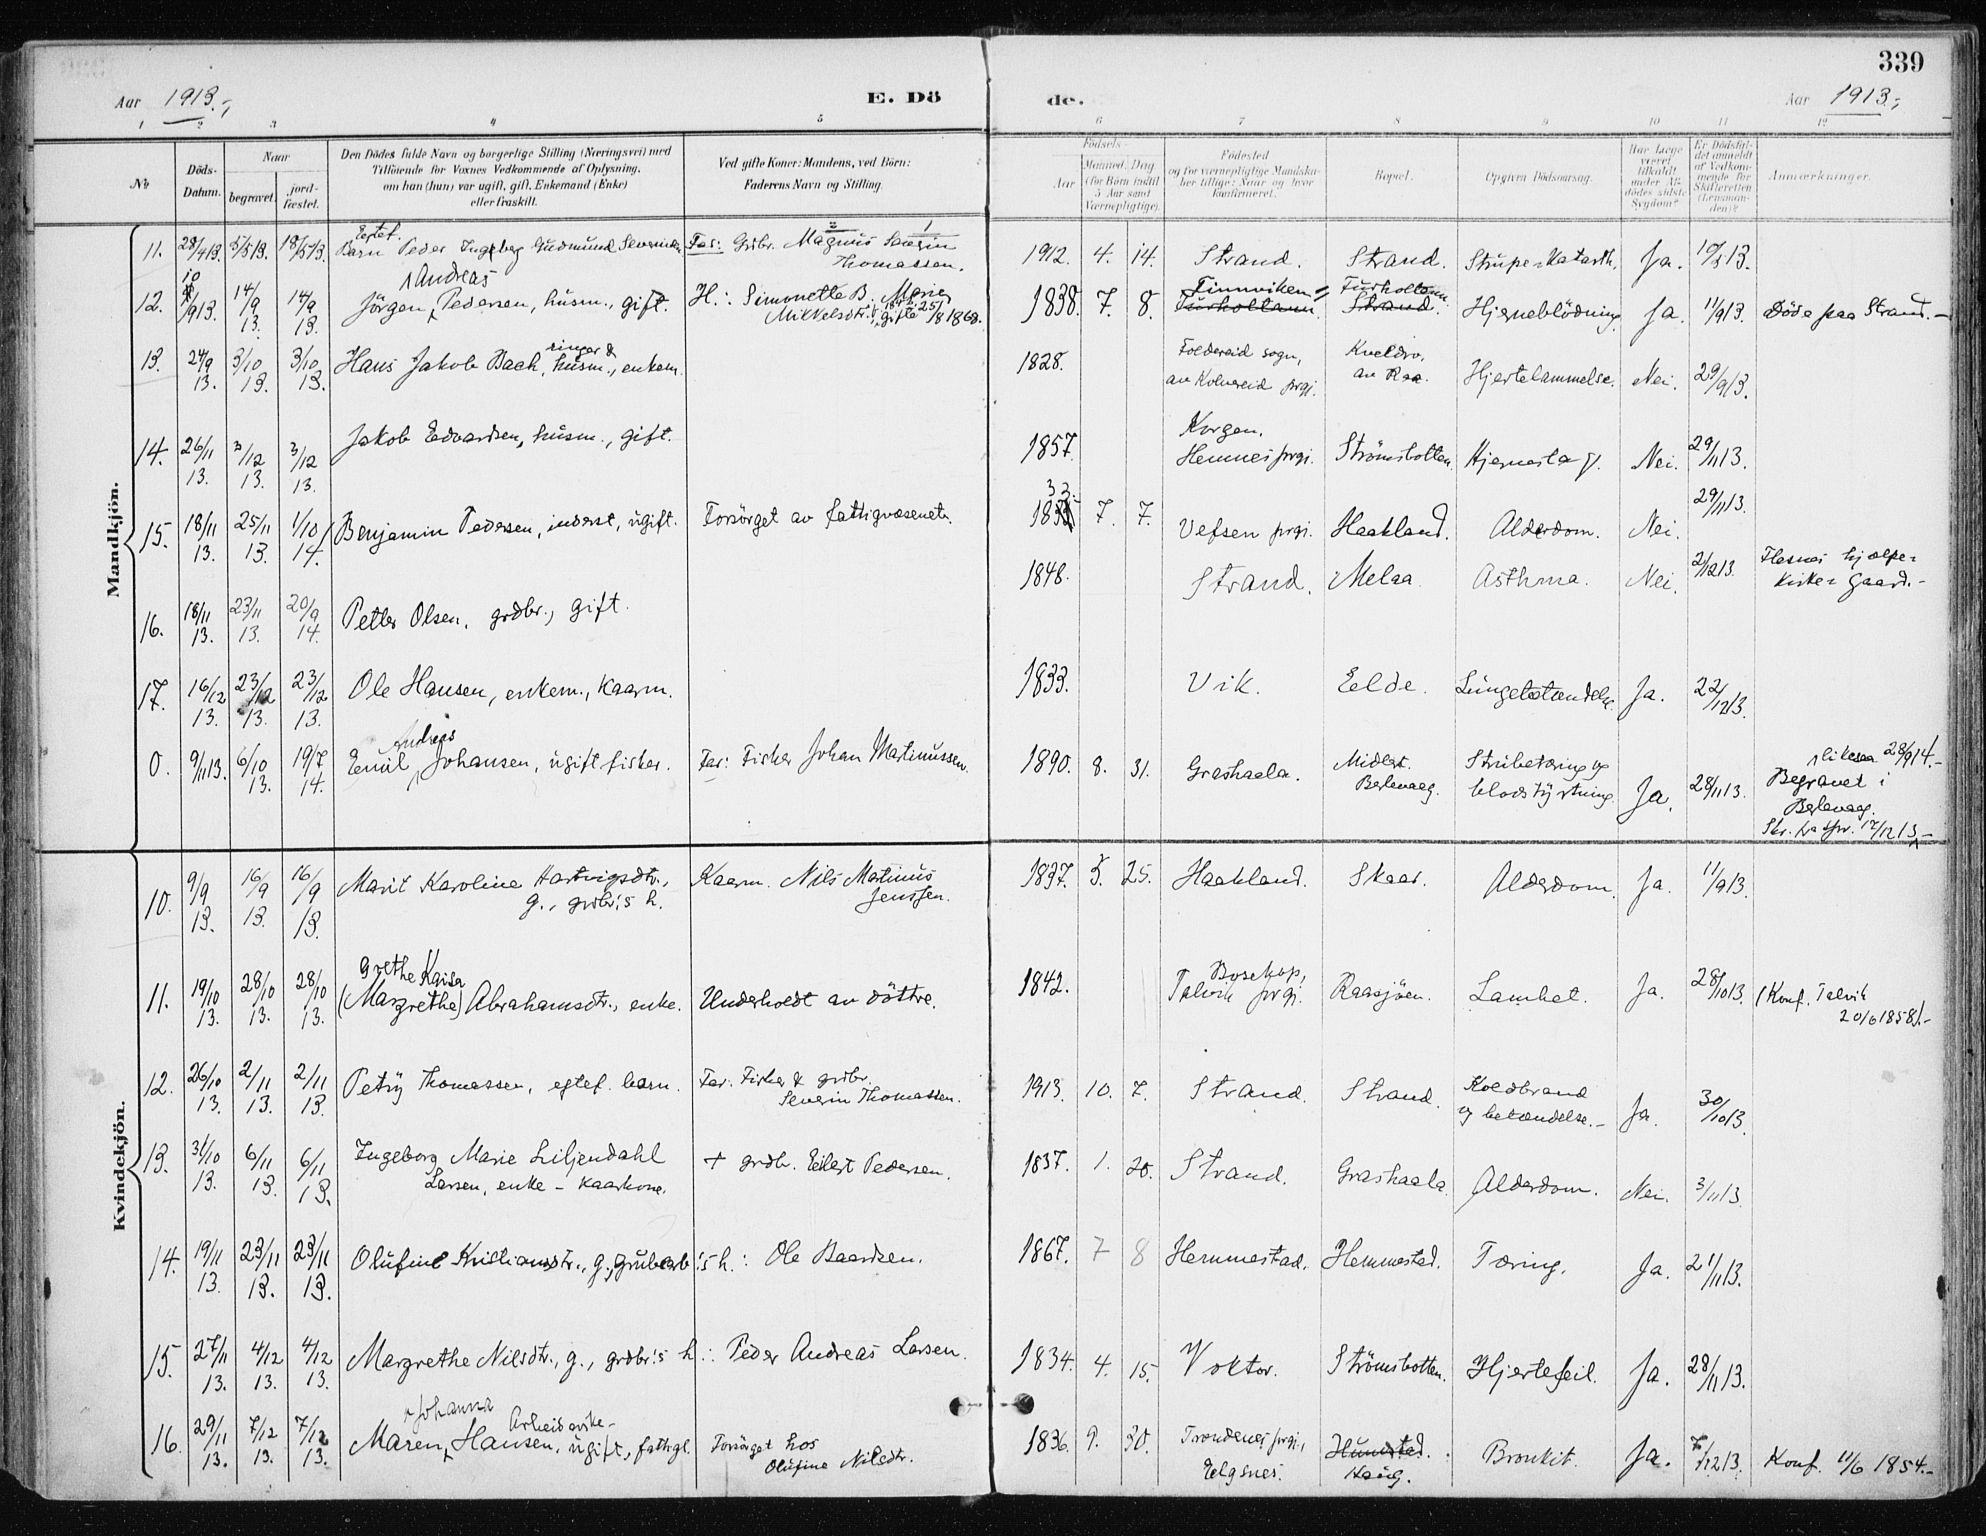 339
Aar 1913.-, E. Dö de. Aar 1913.-,
1 2 3 4 5 6 7 8 9 10 11 12
No. Döds-Datum. Naar begravet. jordfæstet. Den Dödes fulde Navn og borgerlige Stilling (Næringsvei) med Tilföiende for Voxnes Vedkommende af Oplysning, om han (hun) var ugift, gift, Enkemand (Enke) eller fraskilt. Ved gifte Koner: Mandens, ved Börn: Faderens Navn og Stilling. Födsels- Aar Maaned. Dag (for Börn indtil 5 Aar samt Værnepligtige). Födested og for værnepligtige Mandskaber tillige: Naar og hvor konfirmeret. Bopæl. Opgiven Dödsaarsag. Har Læge været tilkaldt under Afdödes sidste Sygdom? Er Dödsfaldet anmeldt af Vedkommende for Skifteretten (Lensmanden)? Anmærkninger.
Mandkjön.
11. 28/4 13. 5/5 13. 18/5 13. Egtef. Barn Peder Ingeberg Gudmund Severinsen Far: Grdbr. Magnus Severin Thomassen. 1912. 4. 14. Strand. Strand. Strupe-Katarrh. Ja. 10/5 13.
12. 10/9 13. 14/9 13. 14/9 13. Jörgen Andreas Pedersen, husm., gift. H.: Simonette B. Marie Mikkelsdtr.; gifte 25/8 1868. 1838. 7. 8. Finnviken Furholtann. Furholtann Strand. Hjerneblödning Ja. 11/9 13. Döde paa Strand.-
13. 24/9 13. 3/10 13. 3/10 13. Hans Jakob Bach, ringer & husm., enkem. 1828. Foldereid sogn, av Kolvereid prgj. Kveldro, av Raa. Hjertelammelse. Nei. 29/9 13.
14. 26/11 13. 3/12 13. 3/12 13. Jakob Edvardsen, husm., gift. 1857. Korgen. Hemnes prgj. Strömsbotten. Hjerneslag. Nei. 29/11 13.
15. 18/11 13. 25/11 13. 1/10 14. Benjamin Pedersen, inderst, ugift. Forsörget av fattigvæsenet. 1833. 7. 7. Vefsen prgj. Haakland. Alderdom. Nei. 29/11 13.
16. 18/11 13. 23/11 13. 20/9 14. Petter Olsen, grdbr., gift. 1848. Strand. Melaa. Asthma. Nei. 2/12 13. Flesnes hjælpe-kirke-gaard.-
17. 16/12 13. 23/12 13. 23/12 13. Ole Hansen, enkem., kaarm. 1833. Vik. Eelde. Lungebetændelse. Ja. 22/12 13.
0. 9/11 13. 6/10 13. 19/7 14. Emil Andreas Johansen, ugift fisker. Far: Fisker Johan Martinussen. 1890. 8. 31. Grashaala. Midlert. Berlevaag. Strubetæring og blodstyrtning. Ja. 28/11 13. likesaa 28/9 14.- Begravet i Berlevaag. 12/12 13.-
Kvindekjön.
10. 9/9 13. 16/9 13. 16/9 13. Marit Karoline Hartvigsdtr., g., grdbr.'s h. Kaarm. Nils Matinus Jenssen. 1837. 3. 25. Haakland. Skaar. Alderdom. Ja. 11/9 13.
11. 19/10 13. 28/10 13. 28/10 13. Grethe Kaisa (Margrethe) Abrahamsdtr., enke. Underholdt av döttre. 1842. Bosekop, Talvik prgj. Raasjöen. Lamhet. Ja. 28/10 13. (Konf. Talvik 20/6 1858).-
12. 26/10 13. 2/11 13. 2/11 13. Petry Thomassen, egtef. barn. Far: Fisker & grdbr. Severin Thomassen. 1913. 10. 7. Strand. Strand. Koldbrand og betændelse.- Ja. 30/10 13.
13. 31/10 13. 6/11 13. 6/11 13. Ingeborg Marie Liljendahl Larsen, enke - kaarkone. + grdbr. Eilert Pedersen. 1837. 1. 20. Strand. Grashaala. Alderdom. Nei. 3/11 13
14. 19/11 13. 23/11 13. 23/11 13. Olufine Kristiansdtr., g., grubearb.'s h.: Ole Baardsen. 1867. 7 8 Hemmestad. Hemmestad. Tæring. Ja. 21/11 13.
15. 27/11 13. 4/12 13. 4/12 13. Margrethe Nilsdtr., g., grdbr.'s h.: Peder Andreas Larsen. 1834. 4. 15. Voktor. Strömsbotten. Hjertefeil. Ja. 28/11 13.
16. 29/11 13. 7/12 13. 7/12 13. Maren Johanna Hansen, Arbeiderske- ugift, fattigl. Forsörget hos Olufine Nilsdtr. 1836. 9. 30. Trondenes prgj., Elgsnes. Hundstad. Haug. Bronkit. Ja. 7/12 13. Konf. 11/6 1854.-